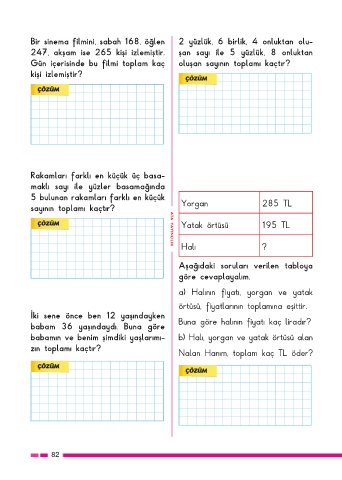 Bir sinema filmini, sabah 168, öğlen
247, akşam ise 265 kişi izlemiştir.
Gün içerisinde bu filmi toplam kaç
kişi izlemiştir?
ÇÖZÜM
Rakamları farklı en küçük üç basa-
maklı sayı ile yüzler basamağında
5 bulunan rakamları farklı en küçük
sayının toplamı kaçtır?
ÇÖZÜM
İki sene önce ben 12 yaşındayken
babam 36 yaşındaydı. Buna göre
babamın ve benim şimdiki yaşlarımı-
zın toplamı kaçtır?
ÇÖZÜM
2 yüzlük, 6 birlik, 4 onluktan olu-
şan sayı ile 5 yüzlük, 8 onluktan
oluşan sayının toplamı kaçtır?
ÇÖZÜM
Yorgan 285 TL
Yatak örtüsü 195 TL
Halı ?
Aşağıdaki soruları verilen tabloya
göre cevaplayalım.
a) Halının fiyatı, yorgan ve yatak
örtüsü, fiyatlarının toplamına eşittir.
Buna göre halının fiyatı kaç liradır?
b) Halı, yorgan ve yatak örtüsü alan
Nalan Hanım, toplam kaç TL öder?
ÇÖZÜM
82